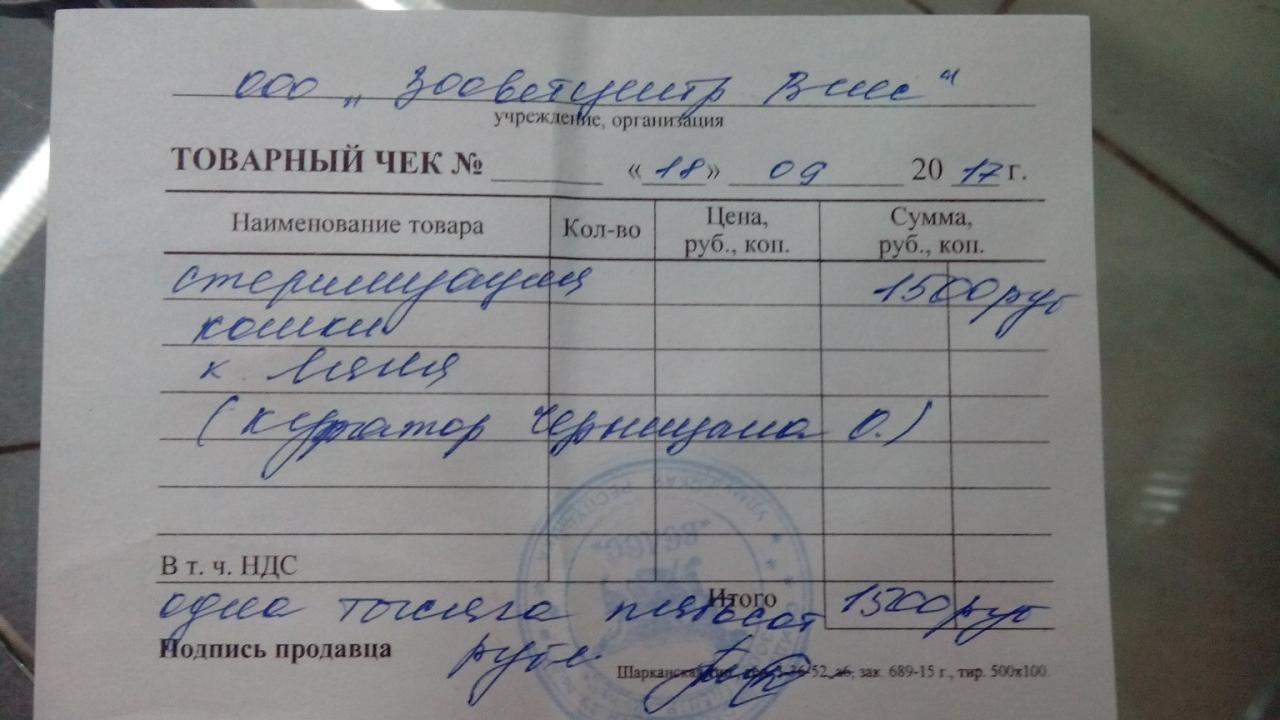 ООО „Зооветцентр Велес“
учреждение, организация
ТОВАРНЫЙ ЧЕК № «18» 09 2017 г.
Наименование товара Кол-во Цена, руб., коп. Сумма, руб., коп.
стерилизация 1500 руб
кошки
к. Ляля
(куратор Черницына О.)
В т. ч. НДС
Итого 1500 руб
одна тысяча пятьсот
рубл.
Подпись продавца
зак. 689-15 г., тир. 500х100.
УДМУРТСКАЯ РЕСПУБЛИКА
"ВЕЛЕС"